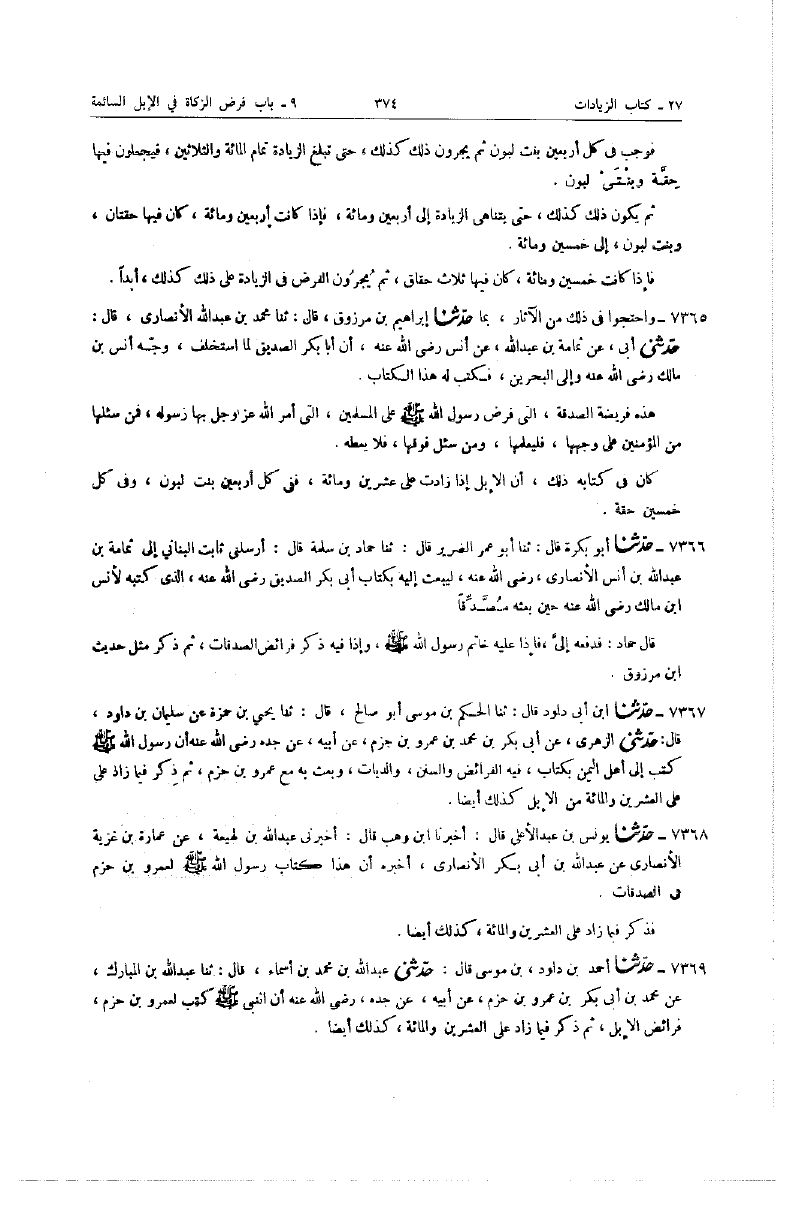 ٢٧ ـ كتاب الزيادات ٣٧٤ ٩ ـ باب فرض الزكاة في الإبل السائمة
فوجب فى كل أربعين بنت لبون ثم يجرون ذلك كذلك ، حتى تبلغ الزيادة تمام المائة والثلاثين ، فيجعلون فيها
حِقَّة وبِنْتَىْ لبون .
ثم يكون ذلك كذلك ، حتى يتناهى الزيادة إلى أربعين ومائة ، فإذا كانت أربعين ومائة ، كان فيها حقتان ،
وبنت لبون ، إلى خمسين ومائة .
فإذا كانت خمسين ومائة ، كان فيها ثلاث حقاق ، ثم يُجرُون الفرض فى الزيادة على ذلك كذلك ، أبداً .
٧٣٦٥ ـ واحتجوا فى ذلك من الآثار ، بما حدّثنا إبراهيم بن مرزوق ، قال : ثنا محمد بن عبدالله الأنصارى ، قال :
حدّثنى أبى ، عن ثمامة بن عبدالله ، عن أنس رضى الله عنه ، أن أبا بكر الصديق لما استخلف ، وجّه أنس بن
مالك رضى الله عنه وإلى البحرين ، فكتب له هذا الكتاب .
هذه فريضة الصدقة ، التى فرض رسول الله ﷺ على المسلمين ، التى أمر الله عز وجل بها رسوله ، فمن سئلها
من المؤمنين على وجهها ، فليعطها ، ومن سئل فوقها ، فلا يعطه .
كان فى كتابه ذلك ، أن الإبل إذا زادت على عشرين ومائة ، فنى كل أربعين بنت لبون ، وفى كل
خمسين حقة .
٧٣٦٦ ـ حدّثنا أبو بكرة قال : ثنا أبو عمر الضرير قال : ثنا حماد بن سلمة قال : أرسلنى ثابت البنانى إلى ثمامة بن
عبدالله بن أنس الأنصارى ، رضى الله عنه ، ليبعث إليه بكتاب أبى بكر الصديق رضى الله عنه ، الذى كتبه لأنس
ابن مالك رضى الله عنه حين بعثه مـُصَـدِّقاً
قال حماد : فدفعه إلىَّ ، فإذا عليه خاتم رسول الله ﷺ ، وإذا فيه ذكر فرائض الصدقات ، ثم ذكر مثل حديث
ابن مرزوق .
٧٣٦٧ ـ حدّثنا ابن أبى داود قال : ثنا الحكم بن موسى أبو صالح ، قال : ثنا يحيى بن حمزة عن سليمان بن داود ،
قال : حدّثنى الزهرى ، عن أبى بكر بن محمد بن عمرو بن حزم ، عن أبيه ، عن جده رضى الله عنه أن رسول الله ﷺ
كتب إلى أهل اليمن بكتاب ، فيه الفرائض والسنن ، والديات ، وبعث به مع عمرو بن حزم ، ثم ذكر فيما زاد على
على العشرين والمائة من الإبل كذلك أيضا .
٧٣٦٨ ـ حدّثنا يونس بن عبدالأعلى قال : أخبرنا ابن وهب قال : أخبرنى عبدالله بن لهيعة ، عن عمارة بن غزية
الأنصارى عن عبدالله بن أبى بكر الأنصارى ، أخبره أن هذا كتاب رسول الله ﷺ لعمرو بن حزم
فى الصدقات .
فذكر فيما زاد على العشرين والمائة ، كذلك أيضا .
٧٣٦٩ ـ حدّثنا أحمد بن داود ، بن موسى قال : حدّثنى عبدالله بن محمد بن أسماء ، قال : ثنا عبدالله بن المبارك ،
عن محمد بن أبى بكر بن عمرو بن حزم ، عن أبيه ، عن جده ، رضى الله عنه أن النبى ﷺ كتب لعمرو بن حزم ،
فرائض الإبل ، ثم ذكر فيما زاد على العشرين والمائة ، كذلك أيضا .